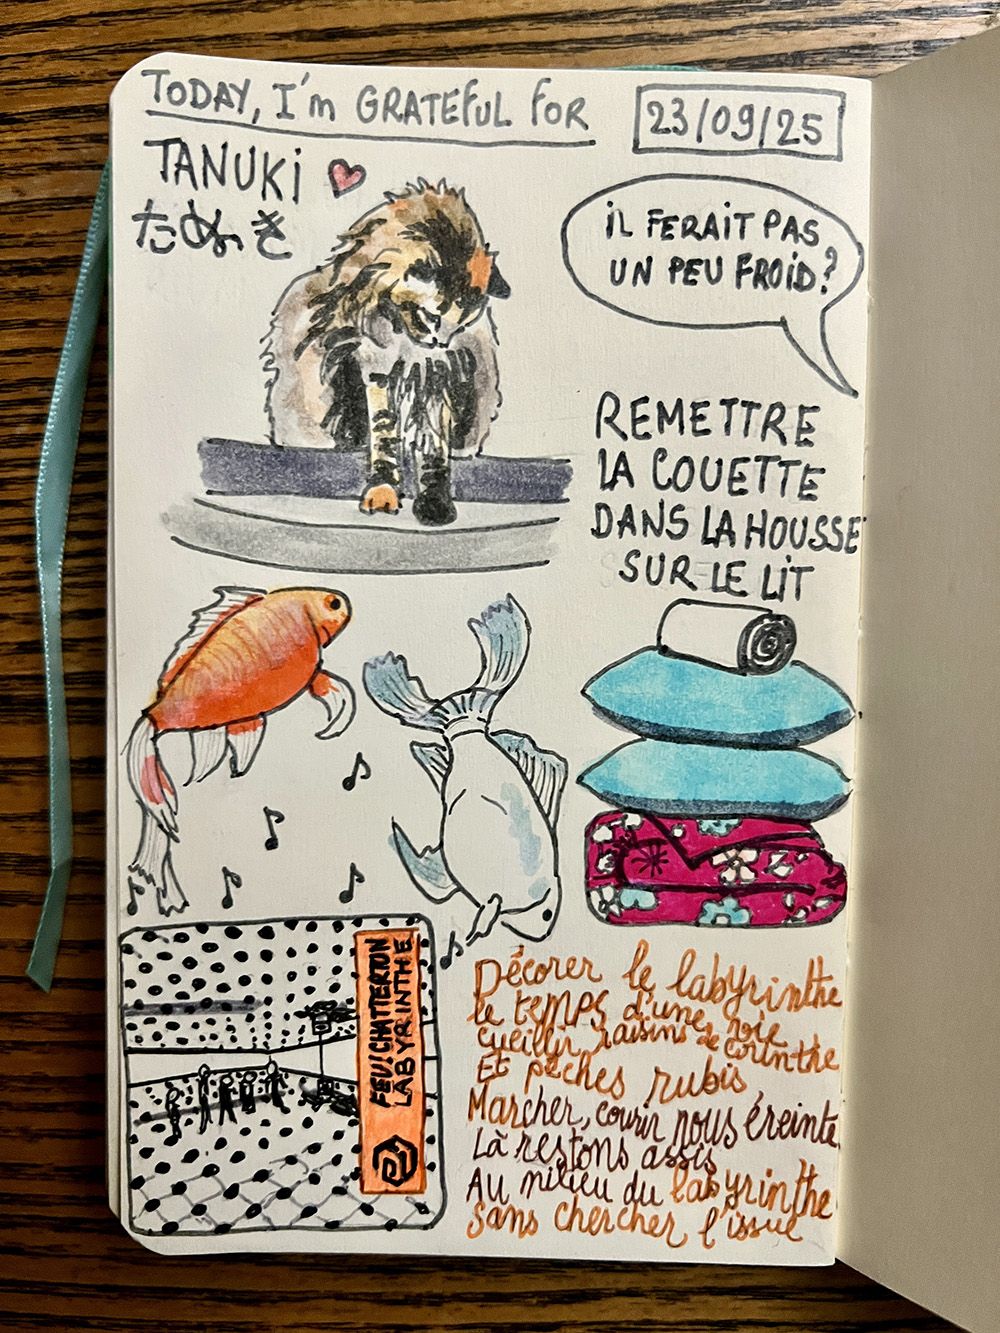 TODAY, I'm GRATEFUL FOR
23/09/25
TANUKi
たぬき
iL FERAIT PAS
UN PEU FROiD?
REMETTRE
LA COUETTE
DANS LA HOUSSE
SUR LE LIT
FEU! CHATTERTON
LABYRINTHE
Décorer le labyrinthe
le temps d'une vie
cueillir raisins de corinthe
Et pêches rubis
Marcher, courir nous éreinte
Là restons assis
Au milieu du labyrinthe
Sans chercher l'issue